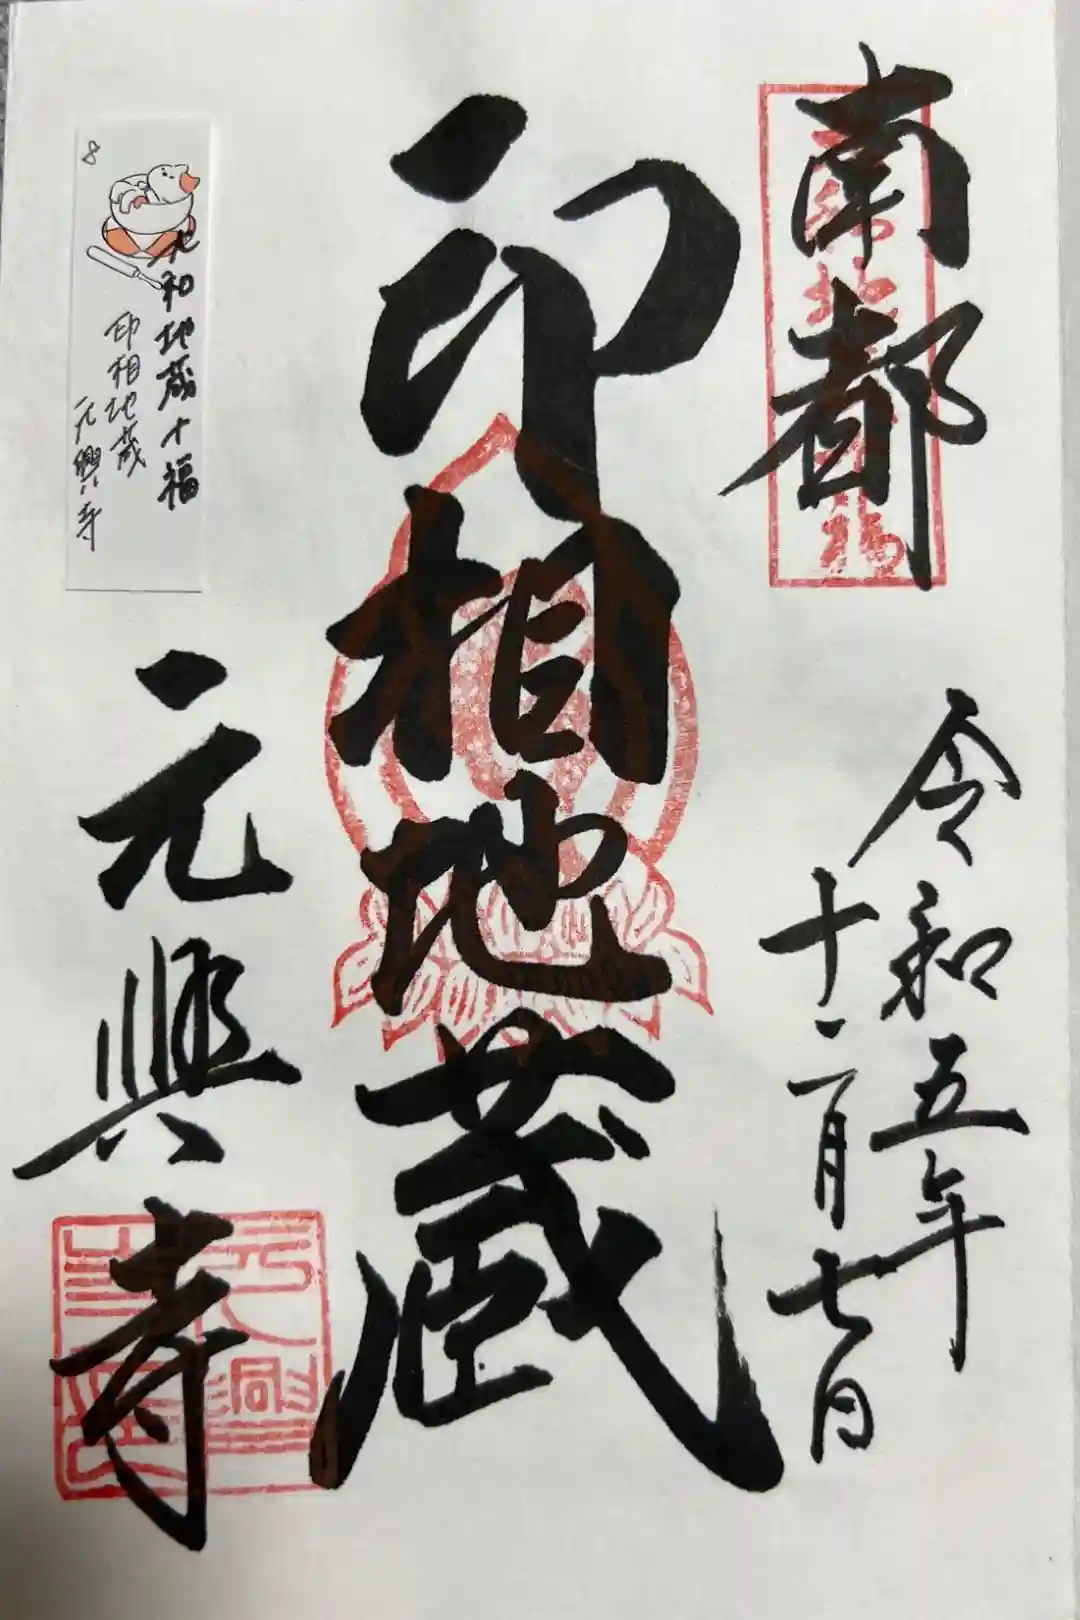 南都
令和五年
十二月七日
印相地蔵
元興寺
8
大和地蔵十福
印相地蔵
元興寺